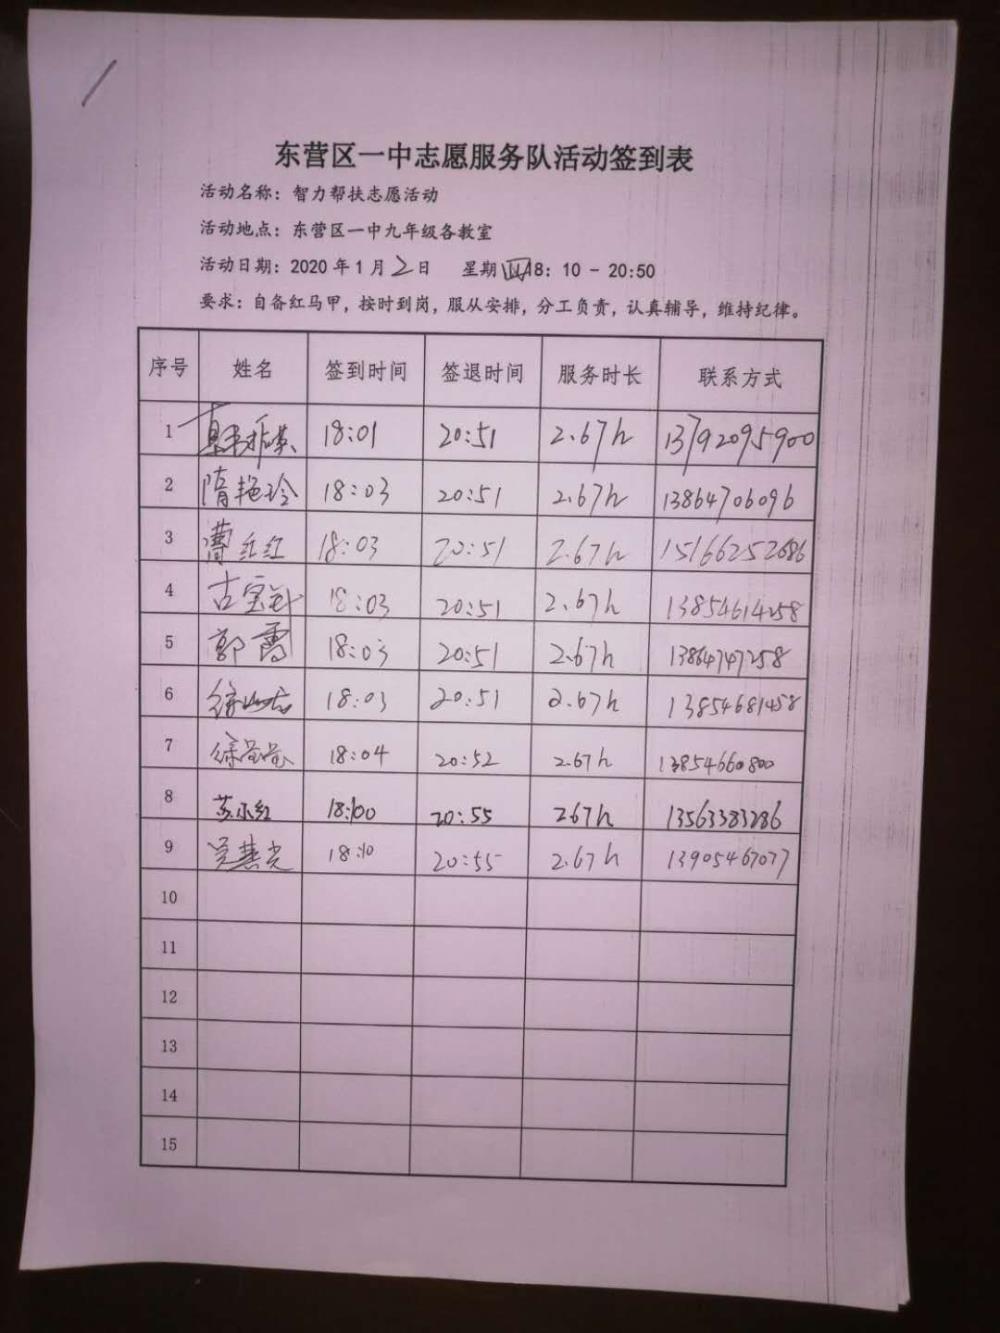 东营区一中志愿服务队活动签到表
活动名称：智力帮扶志愿活动
活动地点：东营区一中九年级各教室
活动日期：2020年1月2日 星期四18：10－20:50
要求：自备红马甲，按时到岗，服从安排，分工负责，认真辅导，维持纪律。
序号 姓名 签到时间 签退时间 服务时长 联系方式
1 18:01 20:51 2.67h 13792095900
2 隋艳玲 18:03 20:51 2.67h 13864706096
3 曹红红 18:03 20:51 2.67h 15166252686
4 古宝针 18:03 20:51 2.67h 13854614258
5 郭霞 18:03 20:51 2.67h 13864747258
6 18:03 20:51 2.67h 13854681458
7 徐莹莹 18:04 20:52 2.67h 13854660800
8 苏小红 18:00 20:55 267h 13563383286
9 吴慧光 18:10 20:55 2.67h 13905467077
10
11
12
13
14
15